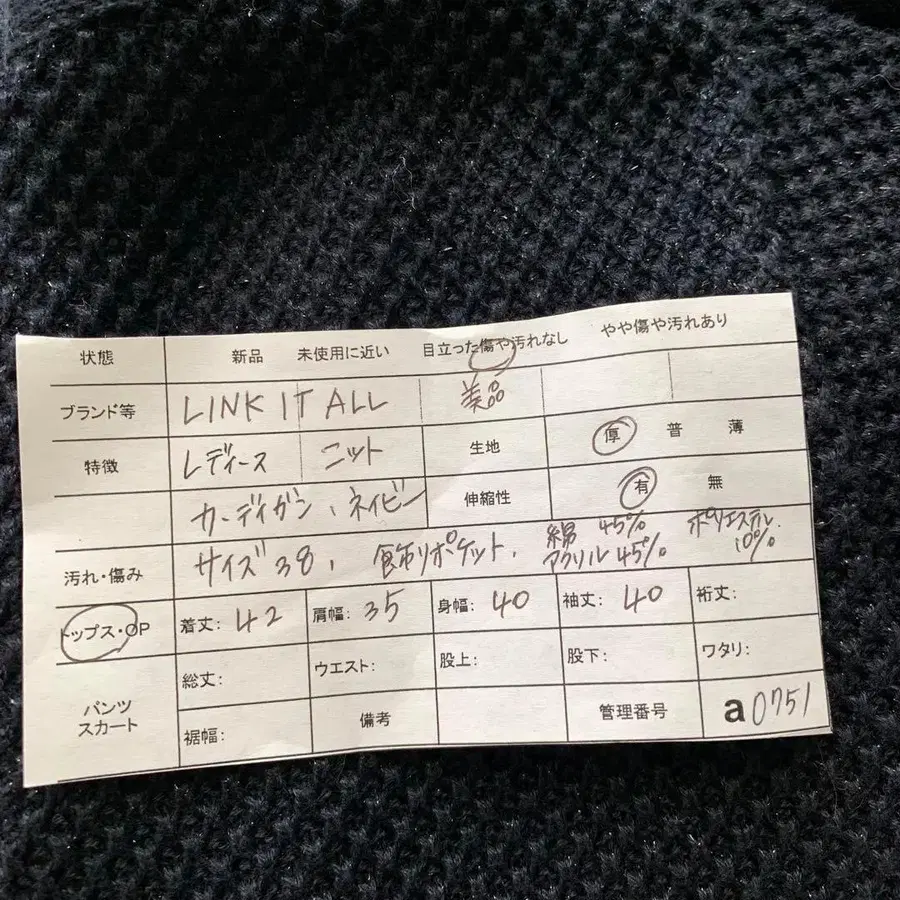 状態 新品 未使用に近い 目立った傷や汚れなし やや傷や汚れあり
ブランド等 LINK IT ALL 美品
特徴 レディース ニット 生地 厚 普 薄
カーディガン、ネイビー 伸縮性 有 無
汚れ・傷み サイズ38、飾りポケット、 綿45% アクリル45% ポリエステル10%
トップス・OP 着丈:42 肩幅:35 身幅:40 袖丈:40 裄丈:
パンツ スカート 総丈: ウエスト: 股上: 股下: ワタリ:
裾幅: 備考 管理番号 a0751